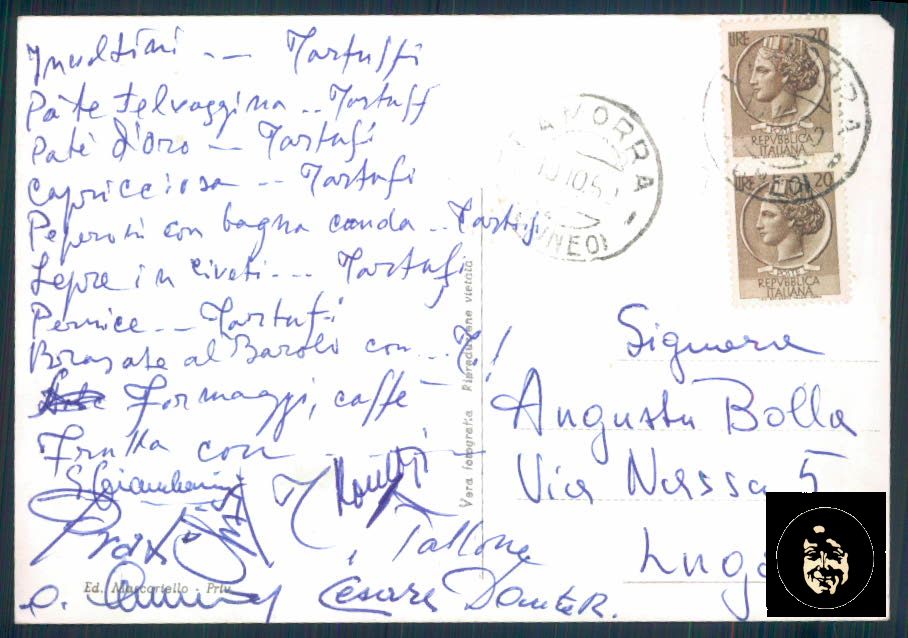 Involtini -- Tartuffi
Pâte selvaggina .. Tartuff
Patè d'oro - Tartufi
Capricciosa -- Tartufi
Peperoni con bagna cauda .. Tartufi
Lepre in civeti --- Tartufi
Pernice -- Tartufi
Brasate al Barolo con ... T!
Formaggi, caffè
Frutta con
Tallone
Cesare
Ed. Marcartello - Priv
Vera fotografia Riproduzione vietata
MORRA
10.10.5
(CUNEO)
LIRE 20
POSTE
REPVBBLICA
ITALIANA
LIRE 20
POSTE
REPVBBLICA
ITALIANA
Signora
Augusta Bolla
Via Nassa 5